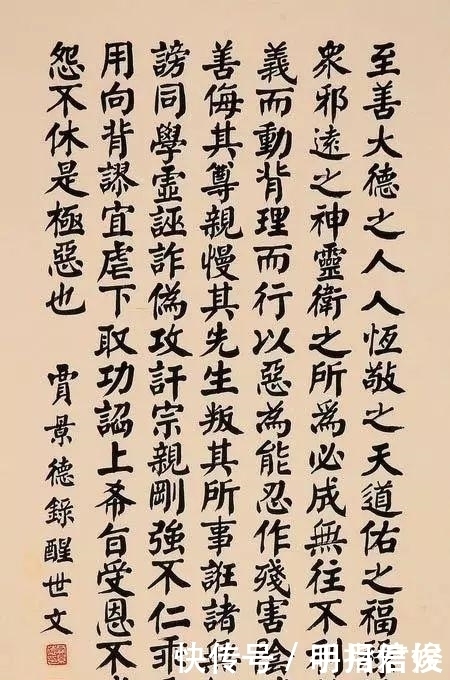 至善大德之人人恆敬之天道佑之福
衆邪遠之神靈衛之所爲必成無往不
義而動背理而行以惡為能忍作殘害陰
善侮其尊親慢其先生叛其所事誑諸
謗同學虛誣詐偽攻訐宗親剛強不仁
用向背謬宜虐下取功諂上希旨受恩不
怨不休是極惡也
賈景德錄醒世文
快传号 /